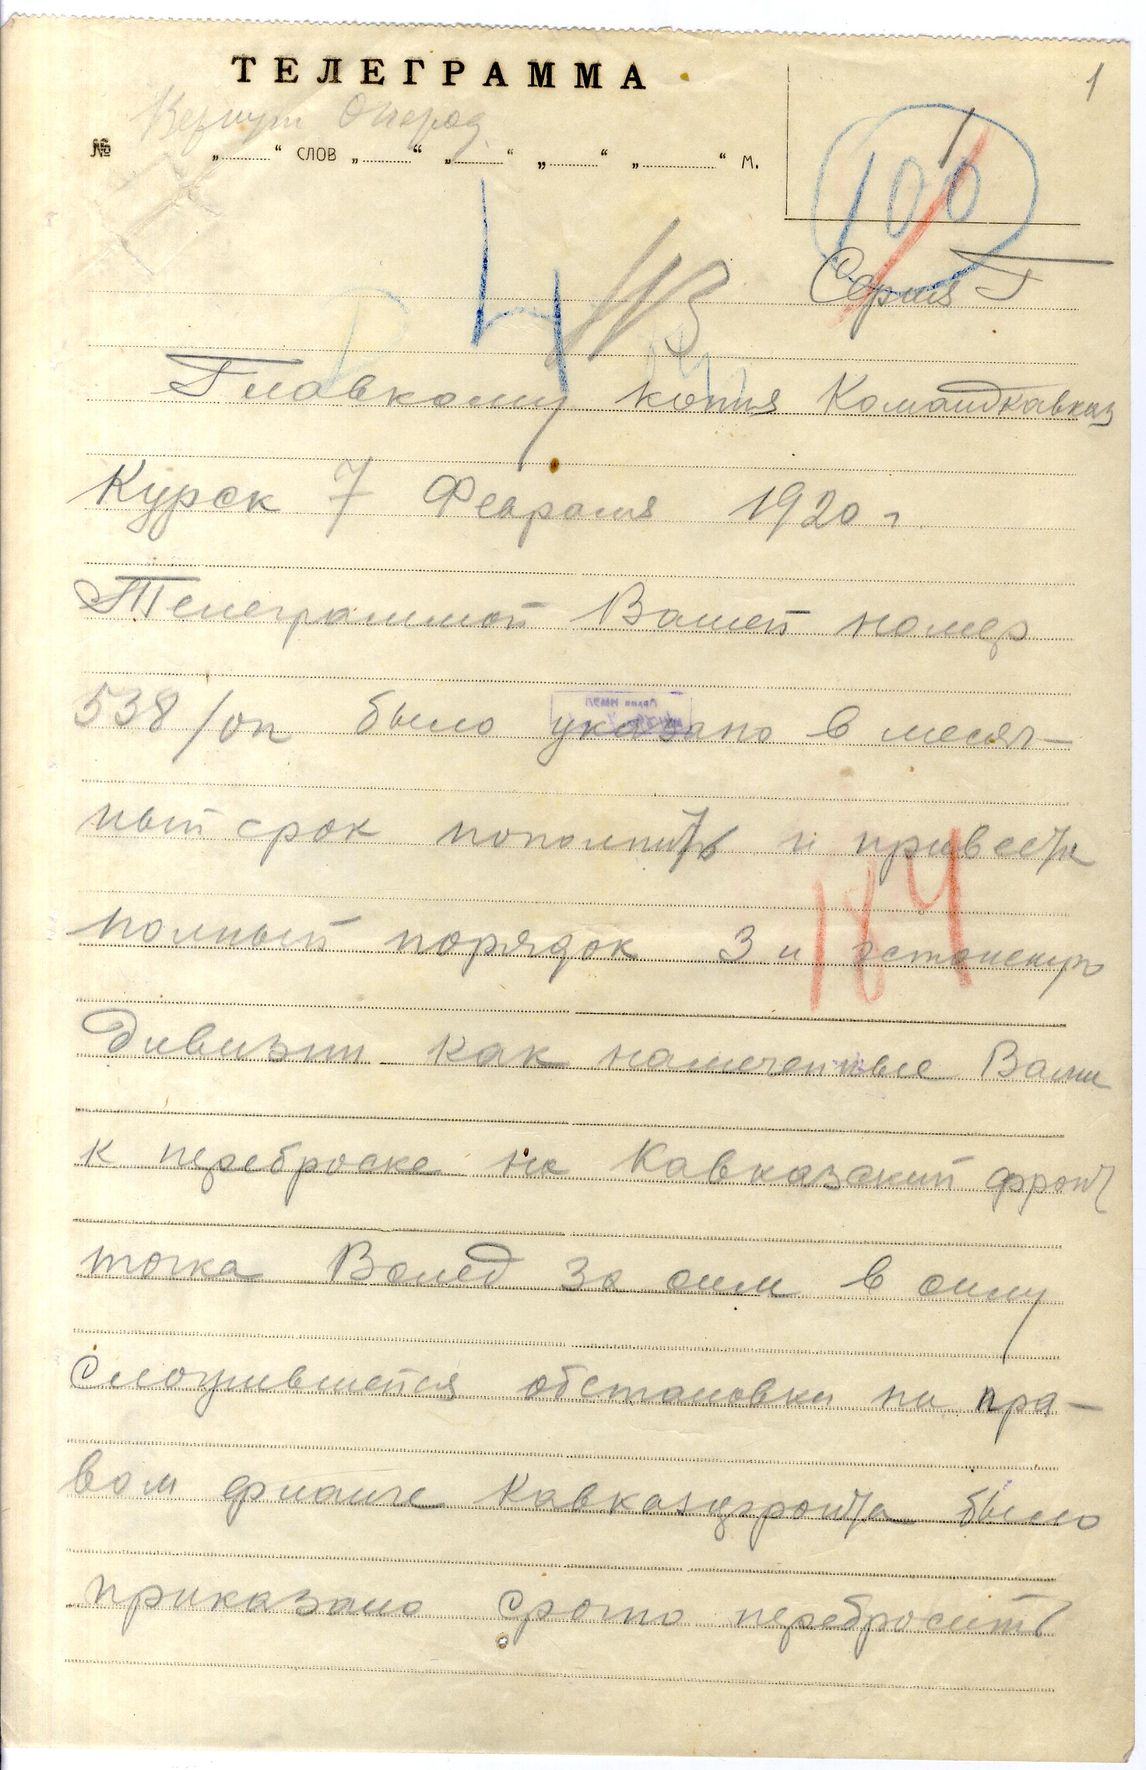 1
ТЕЛЕГРАММА
Вернут Операд.
№ „ “ слов „ “ „ “ „ “ „ “ м.
100
4 НВ
Серия Г
Главкому копия Командкавказ
Курск 7 Февраля 1920 г.
Телеграммой Вашей номер
538/оп было указано в месяч-
ный срок пополнить и привести
полный порядок 3 и эстонскую
дивизии как намеченные Вами
к переброске на Кавказский фронт
точка Вслед за сим в силу
сложившейся обстановки на пра-
вом фланге Кавказфронта было
приказано срочно перебросить
184